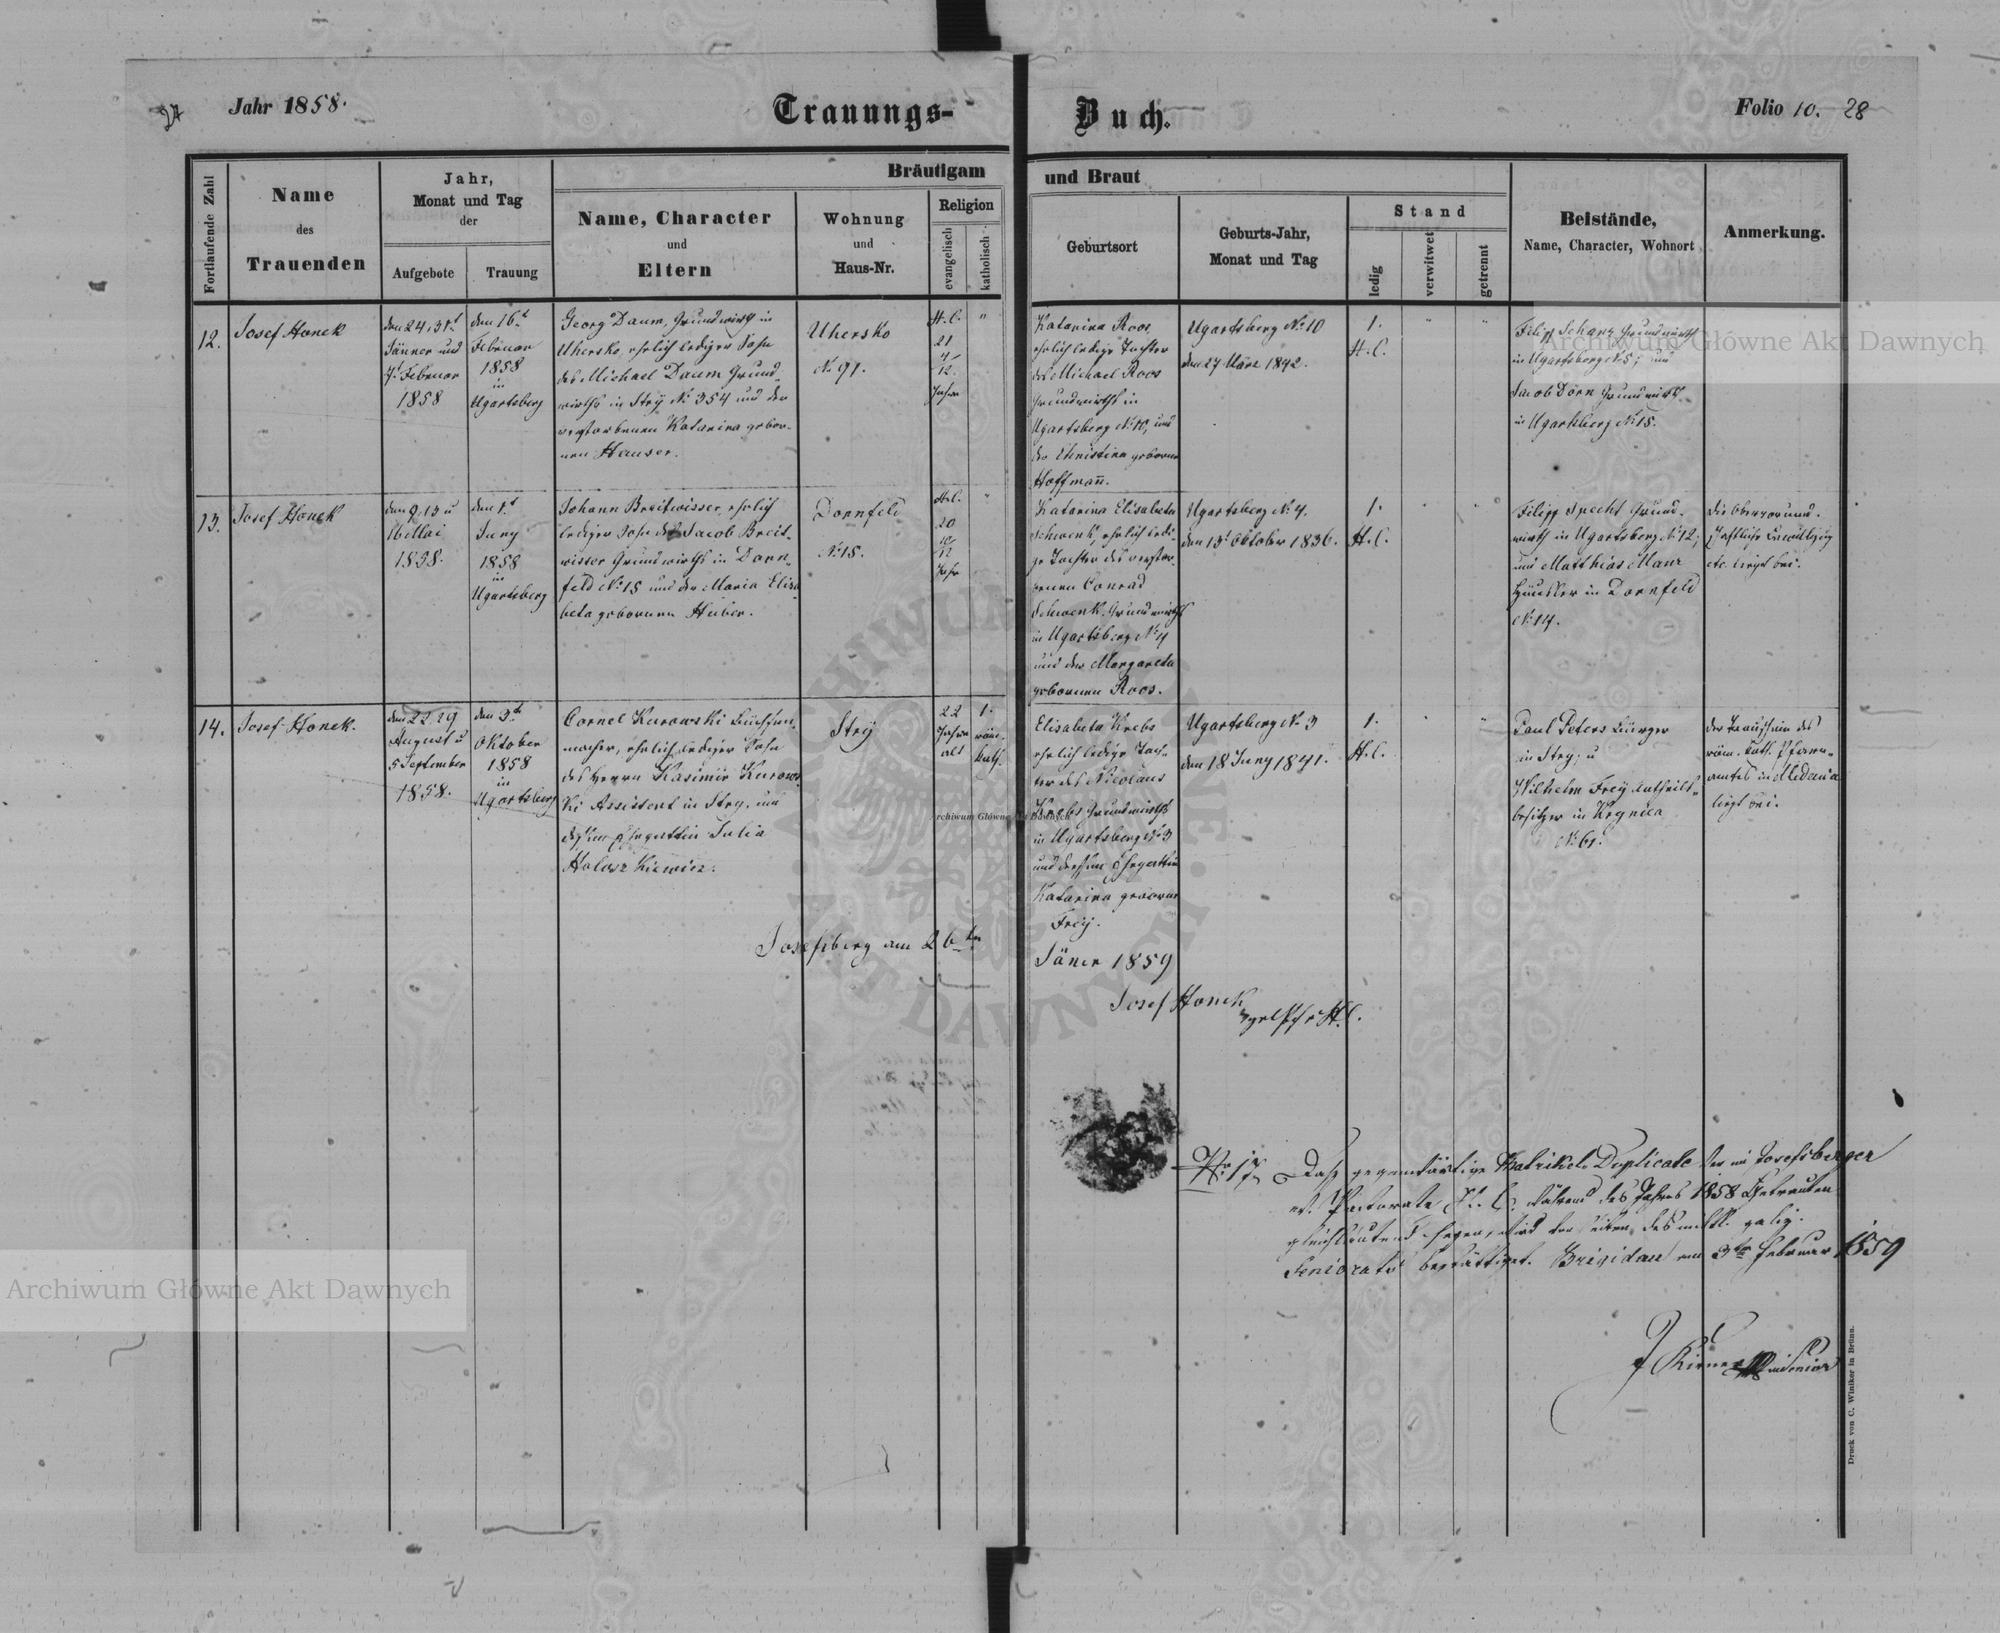 27 Jahr 1858.
Trauungs-
Buch.
Folio 10. 28
Fortlaufende Zahl
Name
des
Trauenden
Jahr,
Monat und Tag
der
Aufgebote
Trauung
Bräutigam
Name, Character
und
Eltern
Wohnung
und
Haus-Nr.
Religion
evangelisch
katholisch
und Braut
Geburtsort
Geburts-Jahr,
Monat und Tag
Stand
ledig
verwitwet
getrennt
Beistände,
Name, Character, Wohnort
Anmerkung.
12.
Josef Honek
den 24, 31t
Jänner und
7t Februar
1858
den 16t
Februar
1858
in
Ugartsberg
Georg Daum, Grundwirth in
Uhersko, ehrlich lediger Sohn
des Michael Daum Grund-
wirths in Stry No 354 und der
verstorbenen Katarina gebor-
nen Hauser.
Uhersko
No 91.
H.C.
21
Jahre
"
Katarina Roos,
ehrlich ledige Tochter
des Michael Roos
Grundwirths in
Ugartsberg No 10, und
der Christina geborne
Hoffmann.
Ugartsberg No 10
den 27 März 1842.
1.
H.C.
"
"
Filipp Schanz Grundwirth
in Ugartsberg No 5, und
Jacob Dörn Grundwirth
in Ugartsberg No 15.
13.
Josef Honek
den 9, 13 u
Mai
1858.
den 1t
Juny
1858
in
Ugartsberg
Johann Breitwisser, ehrlich
lediger Sohn des Jacob Breit-
wisser Grundwirths in Dorn-
feld No 15 und der Maria Elisa
beta gebornen Huber.
Dornfeld
No 15.
H.C.
20
10/12
Jahr
"
Katarina Elisabeta
Schwenk, ehrlich ledi-
ge Tochter des verstor-
benen Conrad
Schwenk Grundwirths
in Ugartsberg No 4
und der Margareta
gebornen Roos.
Ugartsberg No 4.
den 13t Oktober 1836.
1.
H.C.
Filipp Specht Grund-
wirth in Ugartsberg No 12,
und Matthias Manz
Häusler in Dornfeld
No 14.
Die obervormund-
schaftliche Bewilligung
etc. liegt bei.
14.
Josef Honek.
den 22, 29
August u
5 September
1858.
den 3t
Oktober
1858
in
Ugartsberg
Cornel Kurowski Büchsen-
macher, ehrlich lediger Sohn
des Herrn Kasimir Kurows
ki Assistent in Stry, und
dessen Ehegattin Julia
Holowzkiewicz.
Stry
22
Jahre
alt
1.
röm.
kath.
Elisabeta Krebs
ehrlich ledige Toch-
ter des Nicolaus
Krebs Grundwirths
in Ugartsberg No 3
und dessen Ehegattin
Katarina geborne
Frey.
Ugartsberg No 3
den 18 Juny 1841.
1.
H.C.
Paul Peters Bürger
in Stry, u
Wilhelm Frey Antheils-
besitzer in Krynica
No 61.
Der Trauschein des
röm. kath. Pfarr-
amtes in Medenia
liegt bei.
Josefsberg am 26ten
Jäner 1859
Josef Honek
No 17
Daß gegenwärtige Matrikel-Duplicate der im Josefsberger
ev. Pastorate H.C. während des Jahres 1858 Getrauten
gleichlautend seyen, wird von Seiten des galiz.
Seniorats bestättiget. Brigidau am 3ten Februar 1859
Senior
Druck von C. Winiker in Brünn.
Archiwum Główne Akt Dawnych
Archiwum Główne Akt Dawnych
Archiwum Główne Akt Dawnych